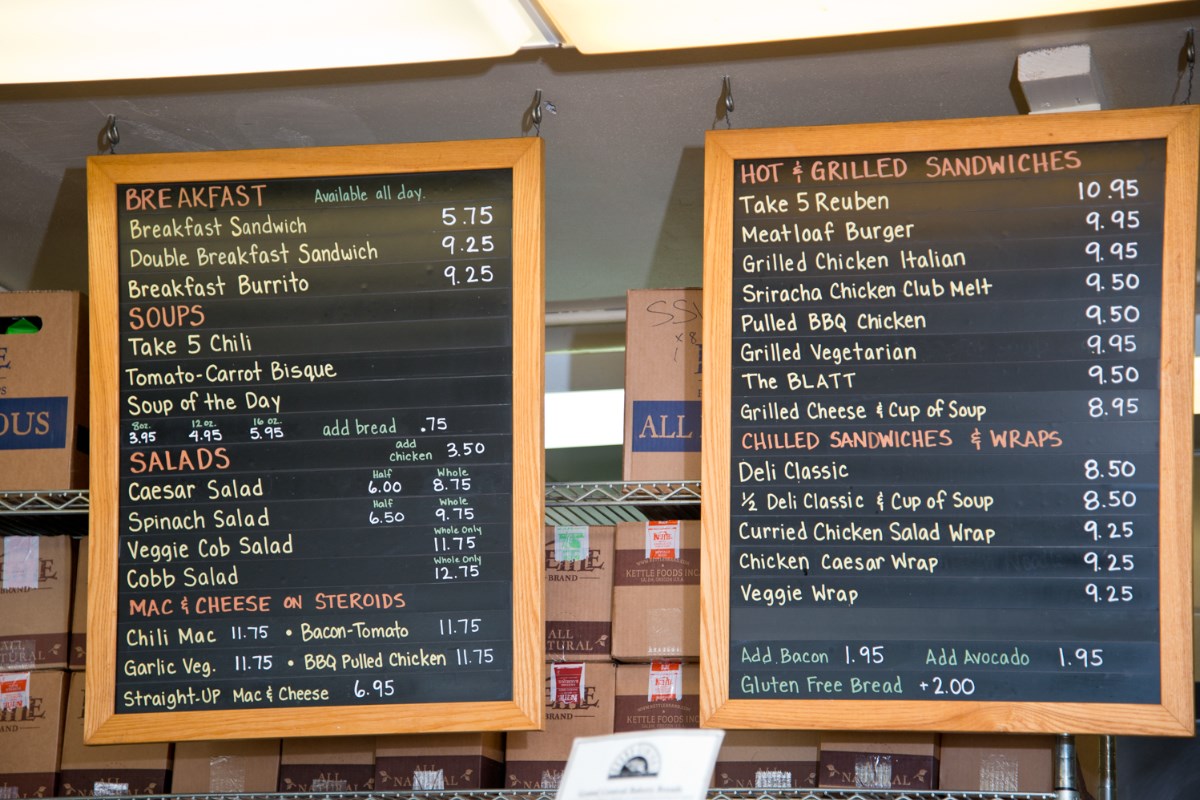 BREAKFAST Available all day.
Breakfast Sandwich 5.75
Double Breakfast Sandwich 9.25
Breakfast Burrito 9.25
SOUPS
Take 5 Chili
Tomato-Carrot Bisque
Soup of the Day
8oz. 12 oz. 16 oz.
3.95 4.95 5.95 add bread .75
SALADS add chicken 3.50
Half Whole
Caesar Salad 6.00 8.75
Half Whole
Spinach Salad 6.50 9.75
Whole Only
Veggie Cob Salad 11.75
Whole Only
Cobb Salad 12.75
MAC & CHEESE ON STEROIDS
Chili Mac 11.75 • Bacon-Tomato 11.75
Garlic Veg. 11.75 • BBQ Pulled Chicken 11.75
Straight-UP Mac & Cheese 6.95
HOT & GRILLED SANDWICHES
Take 5 Reuben 10.95
Meatloaf Burger 9.95
Grilled Chicken Italian 9.95
Sriracha Chicken Club Melt 9.50
Pulled BBQ Chicken 9.50
Grilled Vegetarian 9.95
The BLATT 9.50
Grilled Cheese & Cup of Soup 8.95
CHILLED SANDWICHES & WRAPS
Deli Classic 8.50
½ Deli Classic & Cup of Soup 8.50
Curried Chicken Salad Wrap 9.25
Chicken Caesar Wrap 9.25
Veggie Wrap 9.25
Add Bacon 1.95 Add Avocado 1.95
Gluten Free Bread +2.00
OUS
ALL
BRAND
KETTLE FOODS INC.
ALL
NATURAL
BRAND
ALL
NATURAL